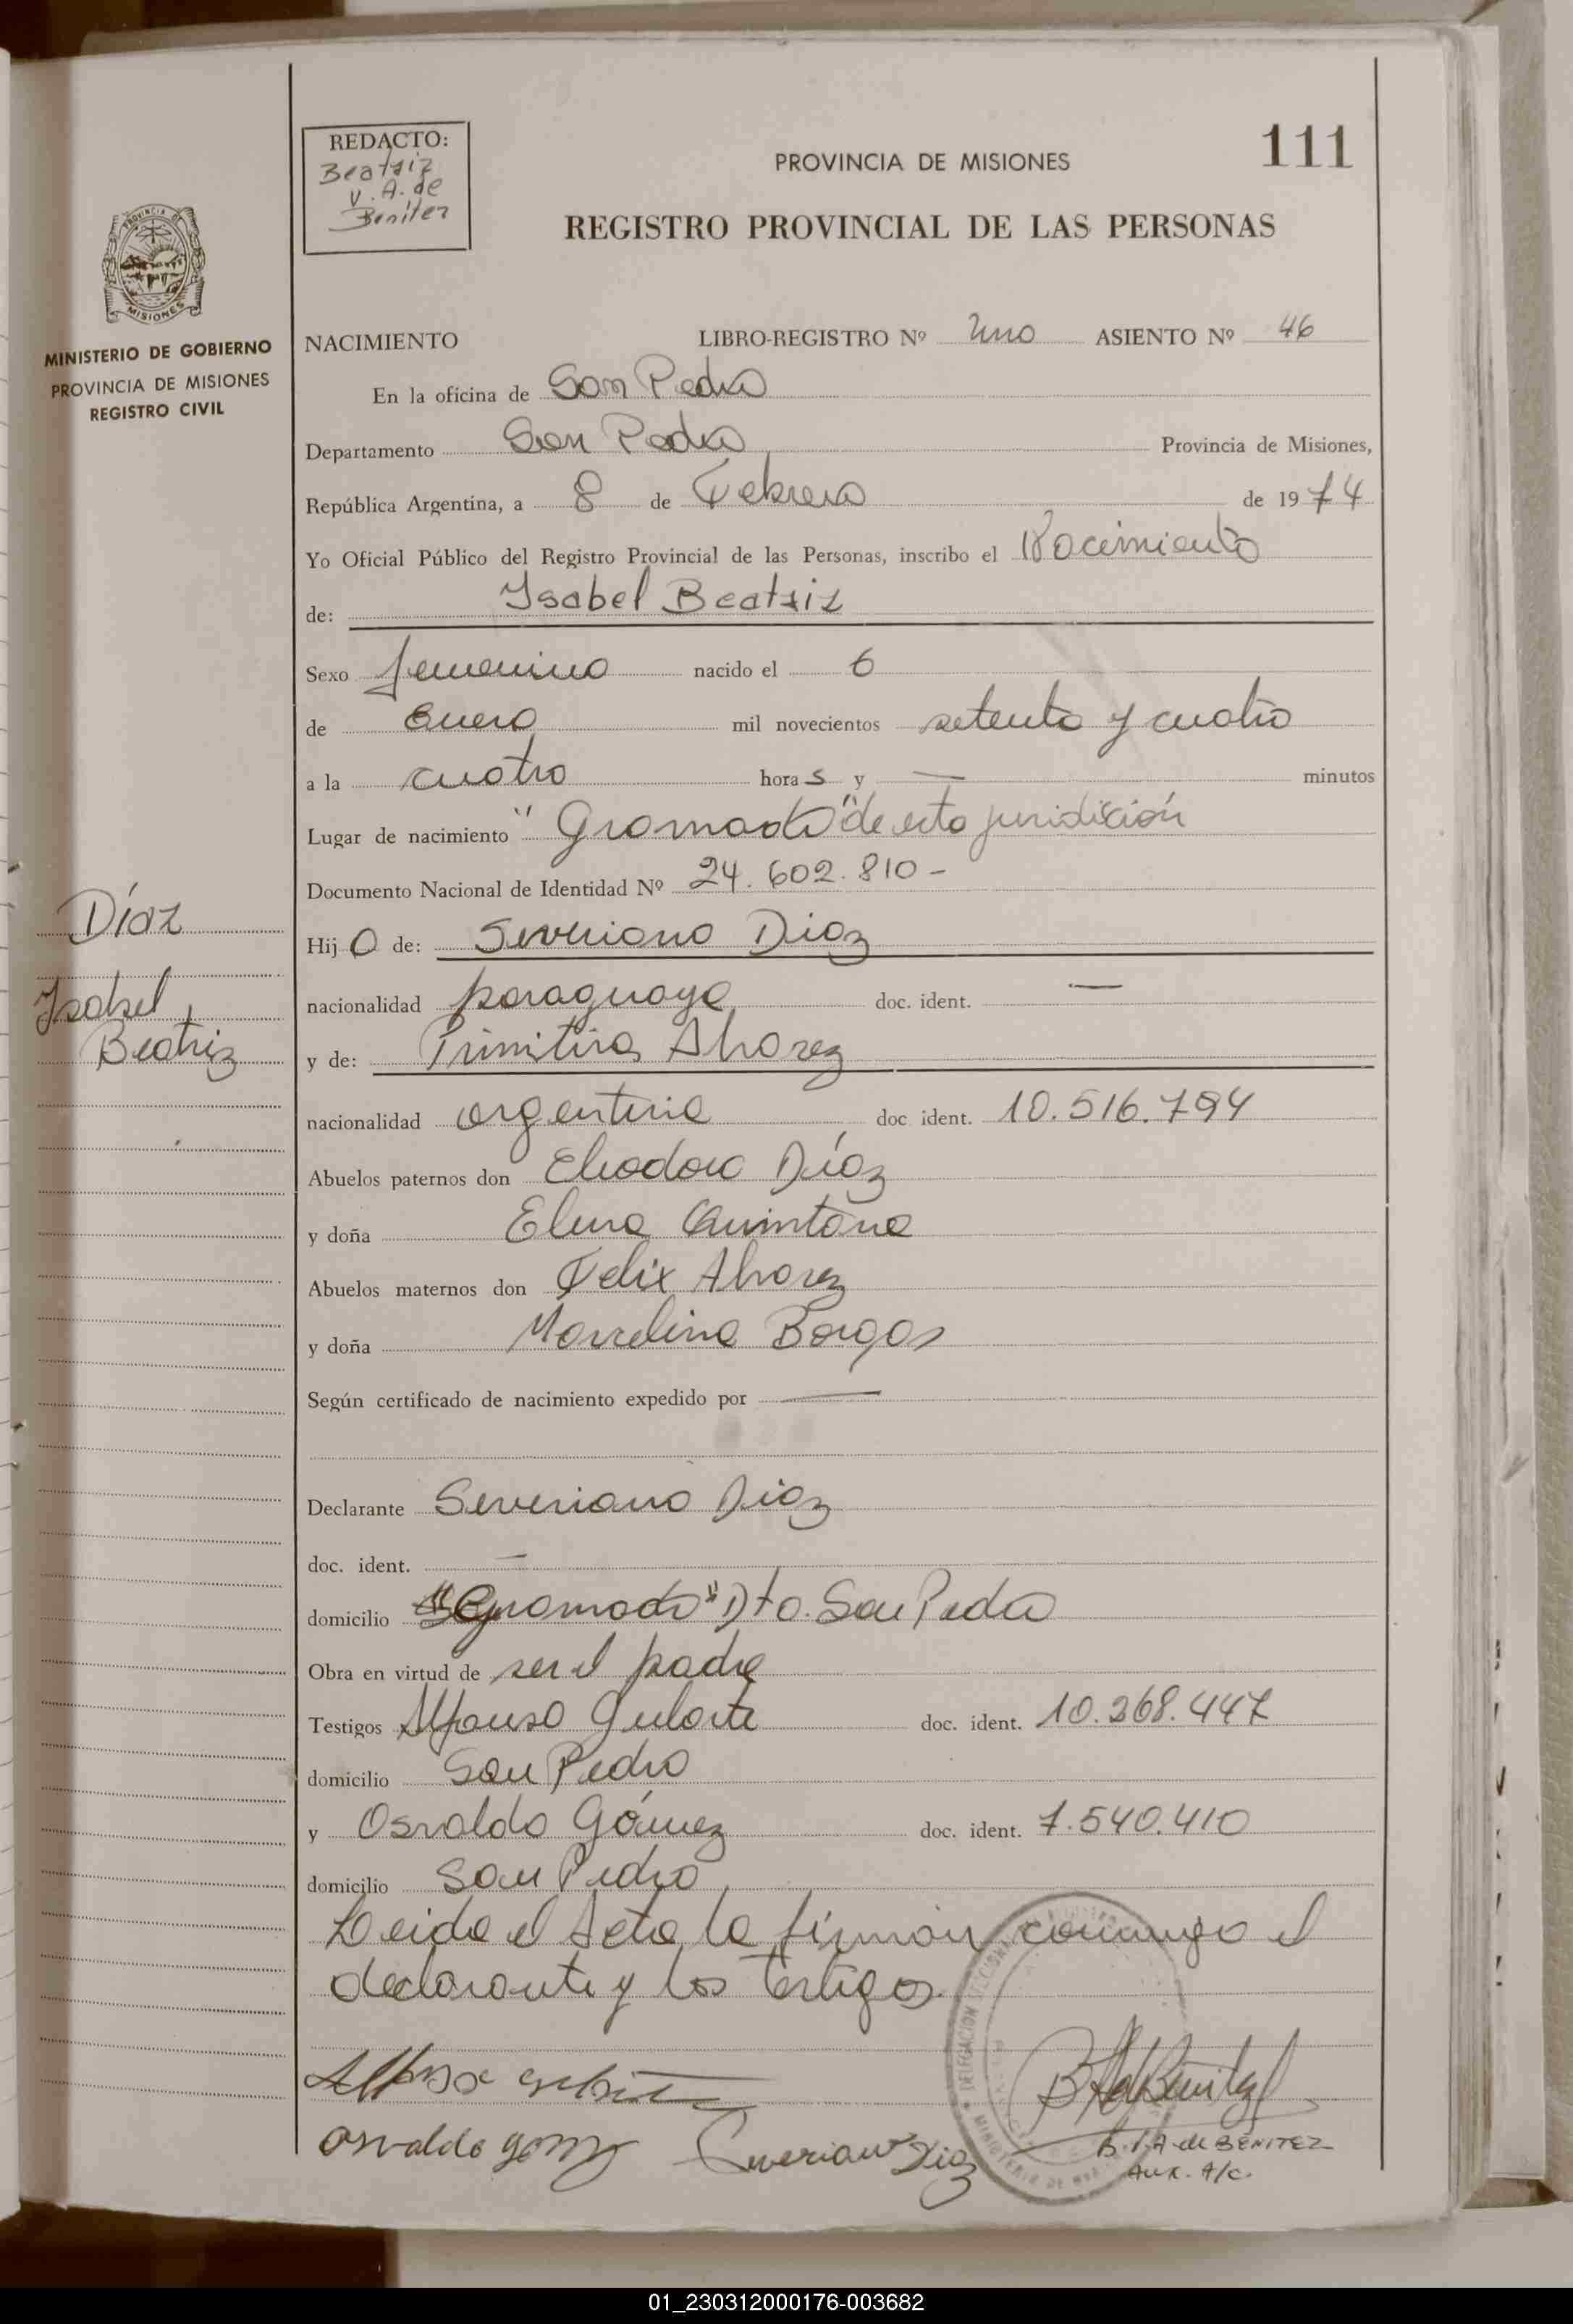 REDACTO:
Beatriz
V. A. de
Benitez
PROVINCIA DE MISIONES
111
REGISTRO PROVINCIAL DE LAS PERSONAS
MISIONES
MINISTERIO DE GOBIERNO
PROVINCIA DE MISIONES
REGISTRO CIVIL
NACIMIENTO LIBRO-REGISTRO Nº Uno ASIENTO Nº 46
En la oficina de San Pedro
Departamento San Pedro Provincia de Misiones,
República Argentina, a 8 de Febrero de 1974
Yo Oficial Público del Registro Provincial de las Personas, inscribo el Nacimiento
de: Isabel Beatriz
Sexo femenino nacido el 6
de Enero mil novecientos setenta y cuatro
a la cuatro horas y — minutos
Lugar de nacimiento "Gramado" de esta juridición
Documento Nacional de Identidad Nº 24.602.810-
Díaz
Hija de: Severiano Diaz
Isabel
nacionalidad paraguaya doc. ident. —
Beatriz
y de: Primitiva Alvarez
nacionalidad argentina doc ident. 10.516.794
Abuelos paternos don Eliodoro Díaz
y doña Elena Quintana
Abuelos maternos don Felix Alvarez
y doña Marcelina Borgas
Según certificado de nacimiento expedido por —
Declarante Severiano Diaz
doc. ident. —
domicilio "Gramado" Dto. San Pedro
Obra en virtud de ser el padre
Testigos Alfonso Gularte doc. ident. 10.268.447
domicilio San Pedro
y Osvaldo Gómez doc. ident. 7.540.410
domicilio San Pedro
Leida el Acta la firman conmigo el
declarante y los testigos.
Osvaldo Gomez Severiano Diaz
B. V. A de BENITEZ
Aux. A/c.
01_230312000176-003682